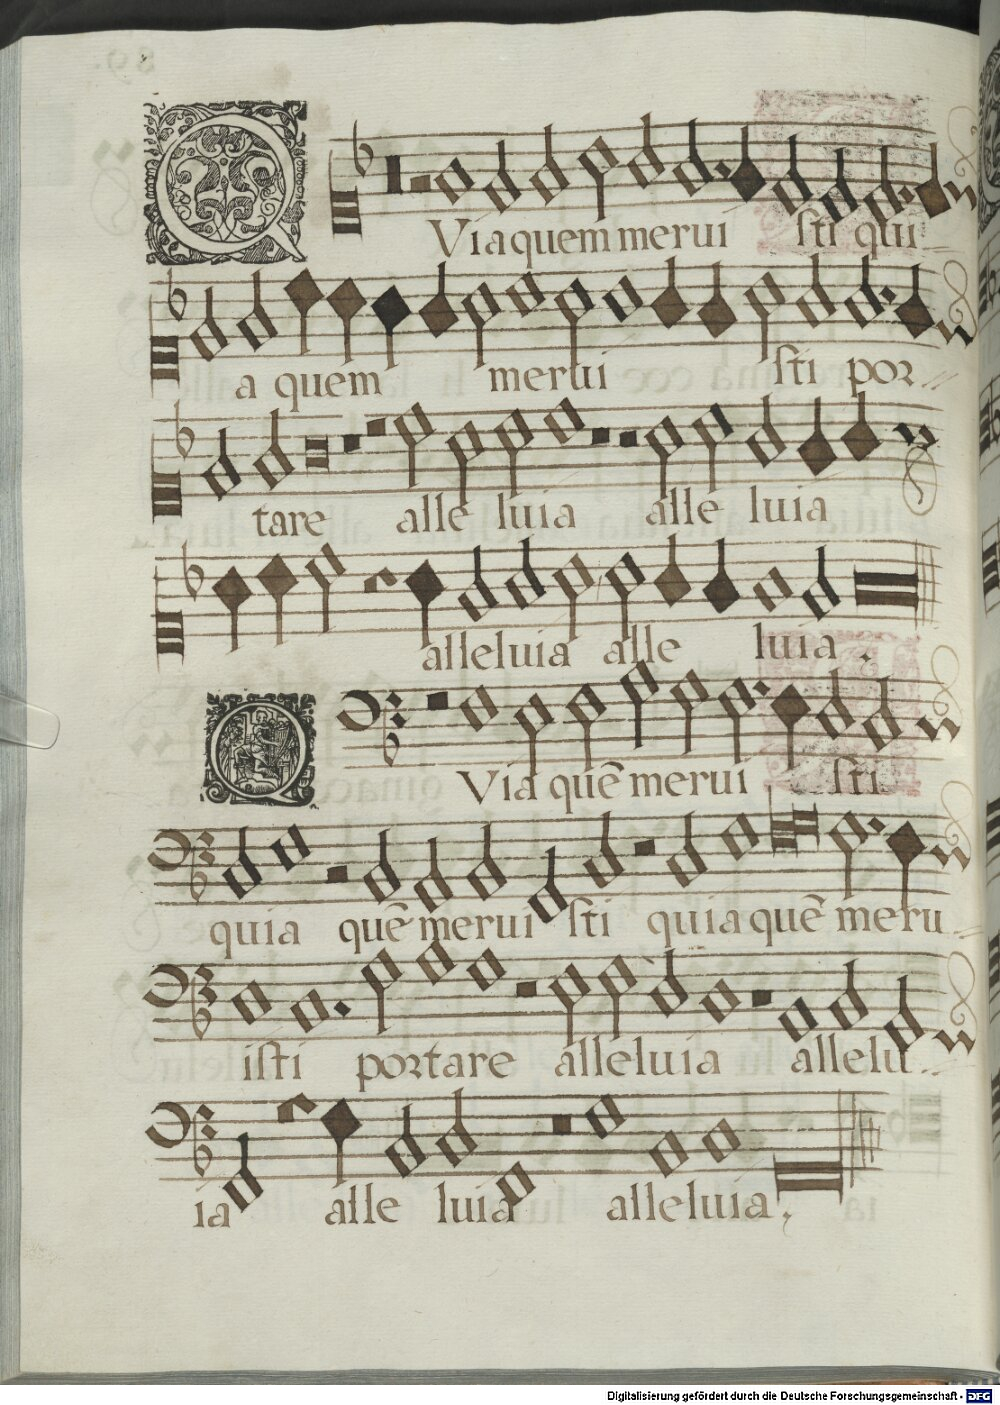 QVia quem merui sti qui
a quem merui sti por
tare alle luia alle luia
alleluia alle luia.
QVia quē merui sti
quia quē merui sti quia quē meru
isti portare alleluia allelu
ia alle luia alleluia.
Digitalisierung gefördert durch die Deutsche Forschungsgemeinschaft - DFG